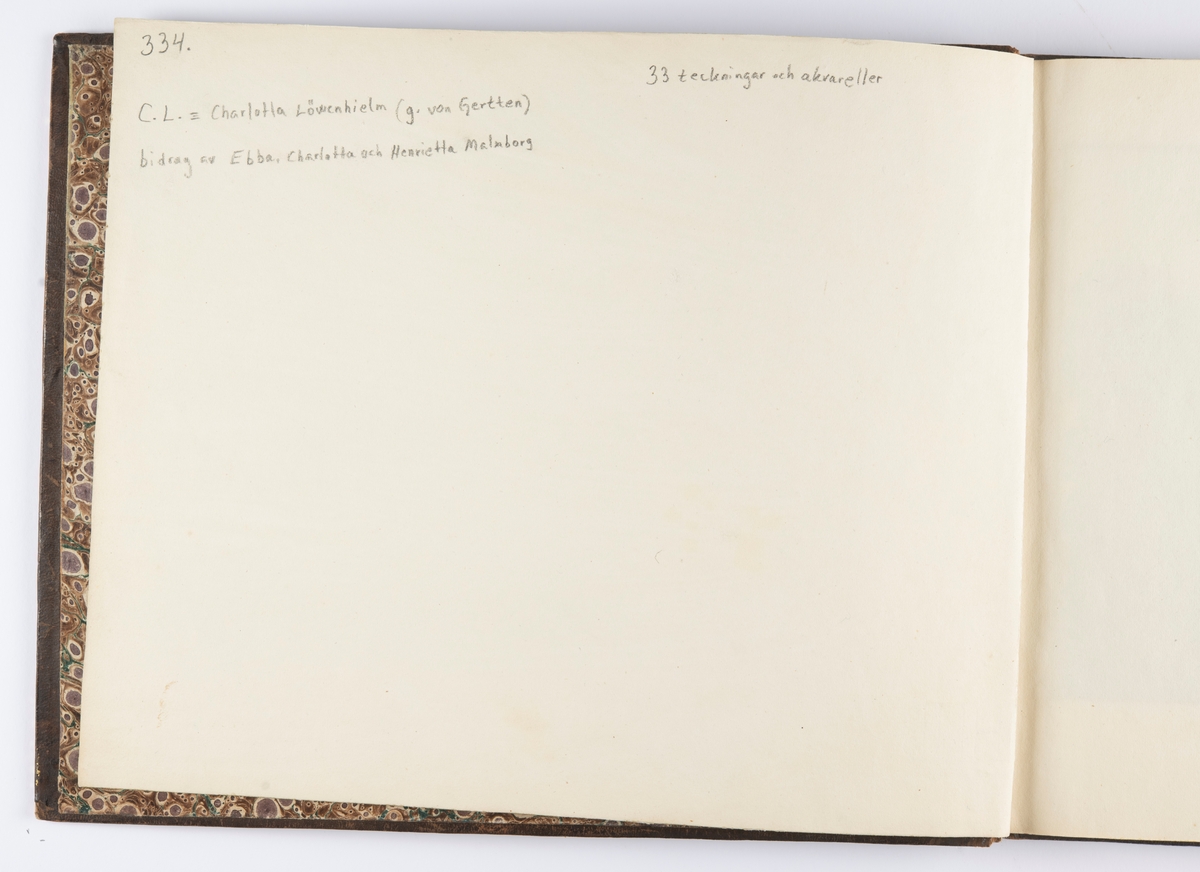 334.
33 teckningar och akvareller
C. L. = Charlotta Löwenhielm (g. von Gertten)
bidrag av Ebba, Charlotta och Henrietta Malmborg